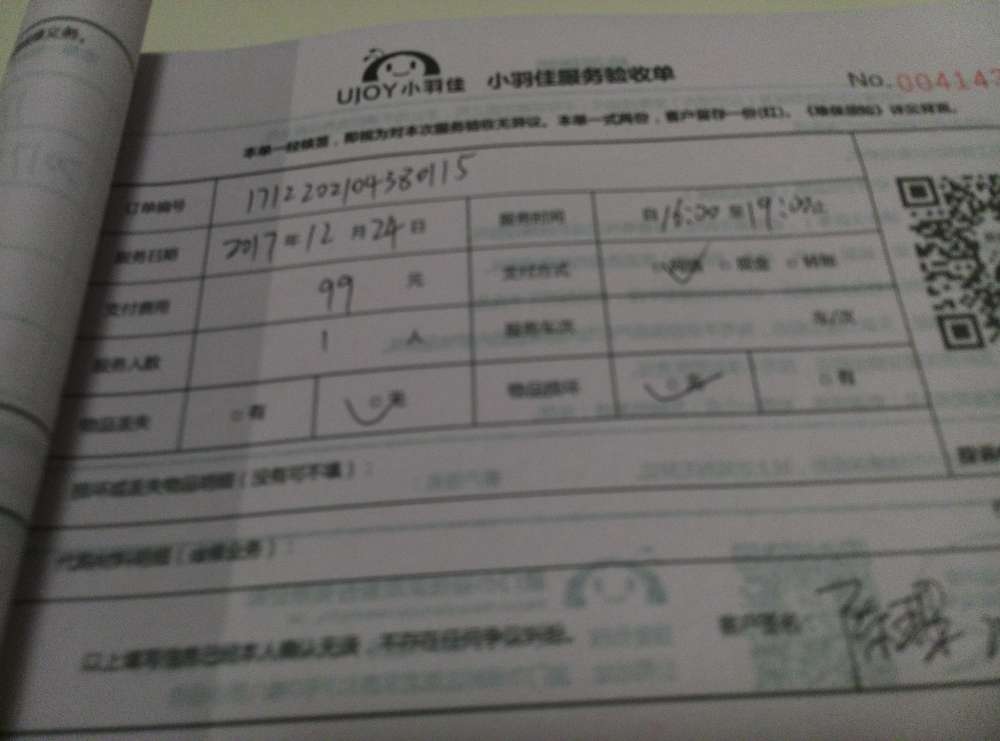 UJOY小羽佳 小羽佳服务验收单 No. 004143
本单一经核签，即视为对本次服务验收无异议。本单一式两份，客户留存一份(红)。
订单编号 1712202104380115
服务日期 2017年12月24日 服务时间 自16:00至19:00止
支付费用 99 元 支付方式 网络 现金 转账
服务人数 1 人 服务车次 车/次
物品丢失 有 无 物品损坏 无 有
损坏或丢失物品明细（没有可不填）：
以上填写信息已经本人确认无误，不存在任何争议纠纷。 客户签名：